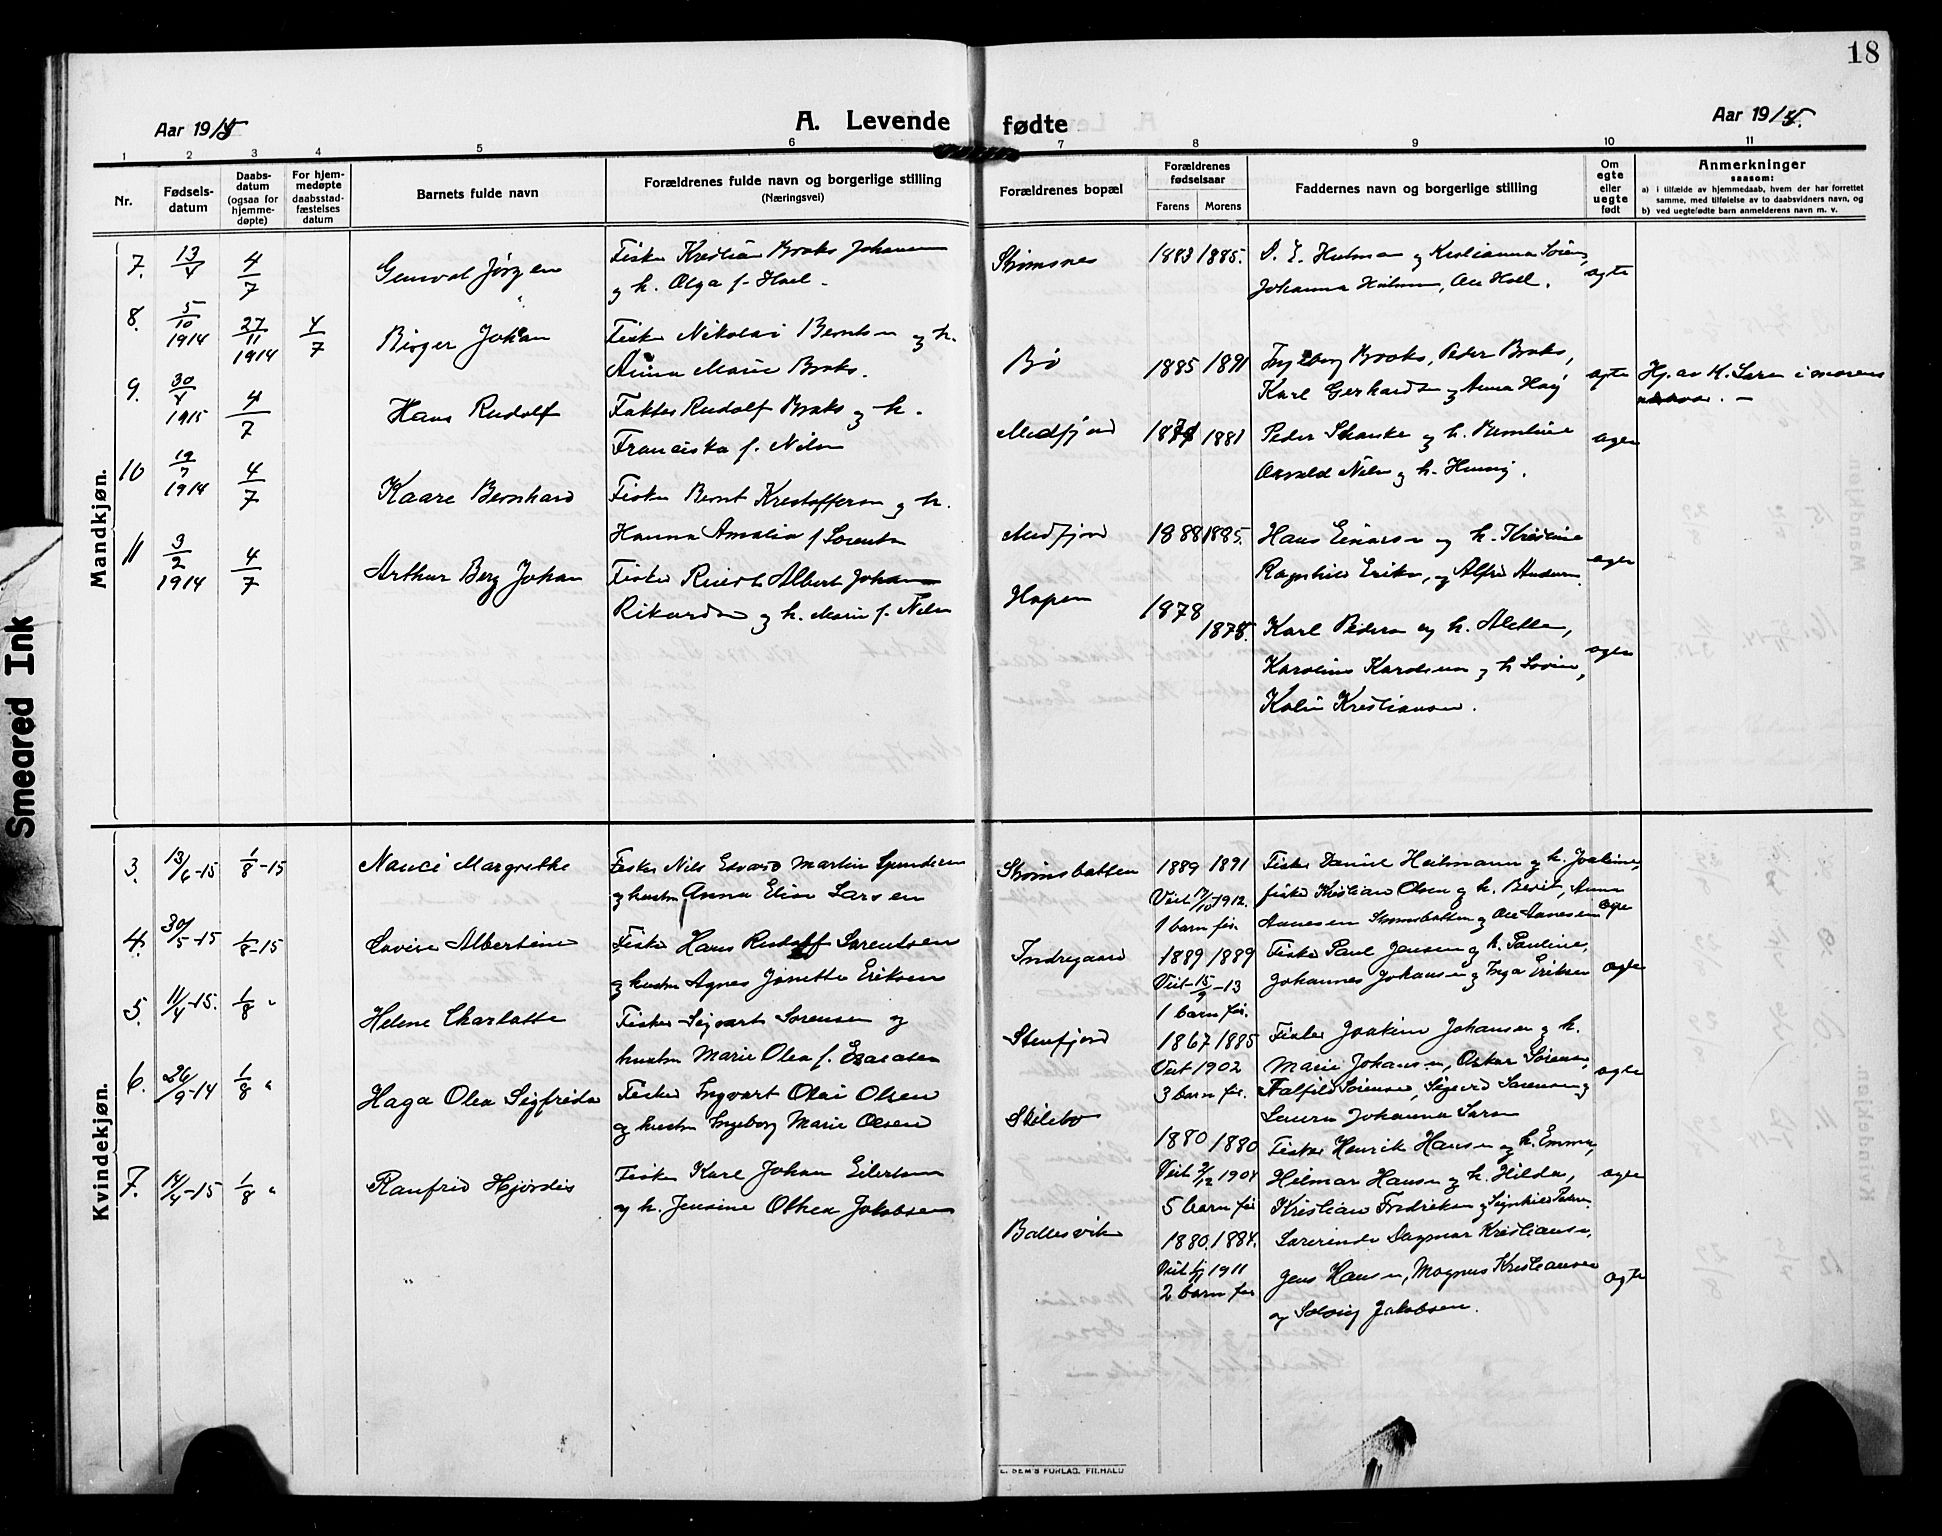 18
Aar 1915
A. Levende fødte
Aar 1915.
1 2 3 4 5 6 7 8 9 10 11
Nr.
Fødsels-
datum
Daabs-
datum
(ogsaa for
hjemme-
døpte)
For hjem-
medøpte
daabsstad-
fæstelses
datum
Barnets fulde navn
Forældrenes fulde navn og borgerlige stilling
(Næringsvei)
Forældrenes bopæl
Forældrenes
fødselsaar
Farens Morens
Faddernes navn og borgerlige stilling
Om
egte
eller
uegte
født
Anmerkninger
saasom:
a) i tilfælde av hjemmedaab, hvem der har forrettet
samme, med tilføielse av to daabsvidners navn, og
b) ved uegtefødte barn anmelderens navn m. v.
Mandkjøn.
7. 13/4 4/7 Jørgen Fisker Kristian Broks Johansen
og h. Olga f. Hoel.
Strømsnes 1883 1885.
Johanna Holmen, Ole Hoel.
ægte
8. 5/10 1914 27/11 1914 4/7 Birger Johan Fisker Nikolai Berntsen og h.
Anna Marie Broks.
Bø 1885 1891 Ingeborg Broks, Peder Broks,
Karl Gerhardsen og Anna Hoy
ægte Hj. av K. Sarsen i morens
9. 30/4 1915 4/7 Hans Rudolf Rudolf Broks og h.
Franciska f. Nilsen
Medfjord 1881 Peder Skanke og h. Berntine
Osvald Nilsen og h. Henny.
10 19/7 1914 4/7 Kaare Bernhard Fisker Bernt Kristoffersen og h.
Hanna Amalia f. Sørensen
Medfjord 1888 1885. Hans Einarsen og h. Kristine
Ragnhild Eriksen, og Alfred Andersen
11 3/2 1914 4/7 Arthur Berg Johan Fisker Albert Johan
Rikardsen og h. Marie f. Nilsen
Hopen 1878 1878. Karl Pedersen og h. Aletta,
Karolius Karolsen og h. Lovise,
Kolin Kristiansen.
Kvindekjøn.
3. 13/6-15 1/8-15 Nanci Margrethe Fisker Nils Edvard Martin
og hustru Anna Elise Larsen
Strømsbotten 1889 1891 Fisker Daniel Heitmann og h. Joakime,
Viet 17/10 1912. fisker Kristian Olsen og h. Berit, Anna
1 barn før. Aanesen Strømsbotten og Ole Aanesen
4. 30/5-15 1/8-15 Lovise Albertine Fisker Hans Rudolf Sørentsen
og hustru Agnes Jonette Eriksen
Indregaard 1889 1889 Fisker Paul Jensen og h. Pauline,
Viet 15/9-13 Johannes Johansen og Inga Eriksen ægte
1 barn før.
5. 11/4-15. 1/8 " Helene Charlotte Fisker Sigvart Sørensen og
hustru Marie Olea f. Esaiasen
Steinfjord 1867 1885 Fisker Joakim Johansen og h.
Viet 1902 Marie Johansen, Oskar Sørensen,
3 barn før. Sørensen, Sigurd Sørensen og
Laura Johanna Sørensen
ægte
6. 26/9-14 1/8 " Haga Olea Sigfrida Fisker Ingvart Olai Olsen
og hustru Ingeborg Marie Olsen
Skilebo 1880 1880 Fisker Henrik Hansen og h. Emma,
Viet 3/12 1904 Hilmar Hansen og h. Hilda,
5 barn før Kristian Fredriksen og Signhild Pedersen
ægte
7. 14/4-15 1/8 " Ranfrid Hjørdis Fisker Karl Johan Eilertsen
og h. Jensine Othea Jakobsen
Ballesvik 1880. 1884. Dagmar Kristiansen,
Viet 1911 Jens Hansen, Magnus Kristiansen
2 barn før og Solveig Jakobsen.
ægte
SEM'S FORLAG, FR.HALD
Smeared Ink